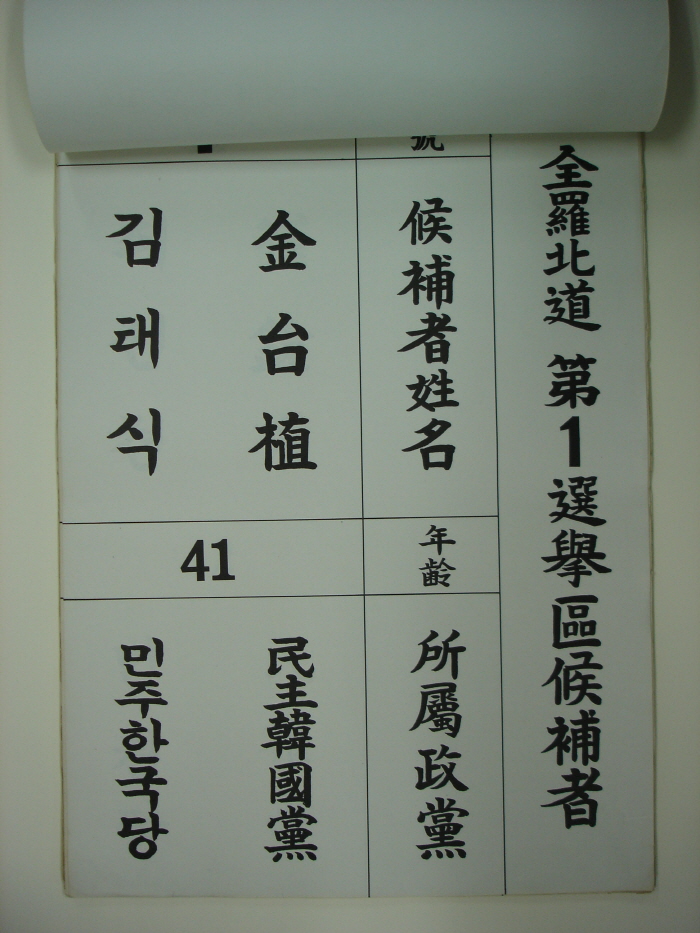 全羅北道 第1選擧區候補者
號
候補者姓名
金台植
김태식
年齡
41
所屬政黨
民主韓國黨
민주한국당